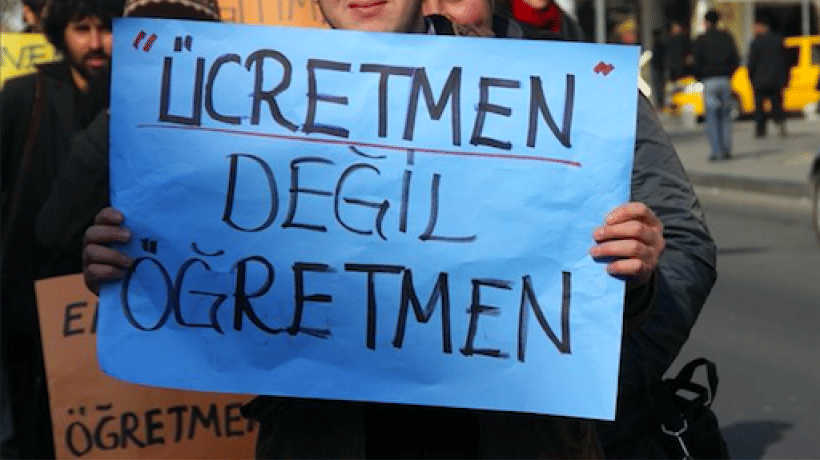 "ÜCRETMEN"
DEĞİL
ÖĞRETMEN
ÖĞRETMEN